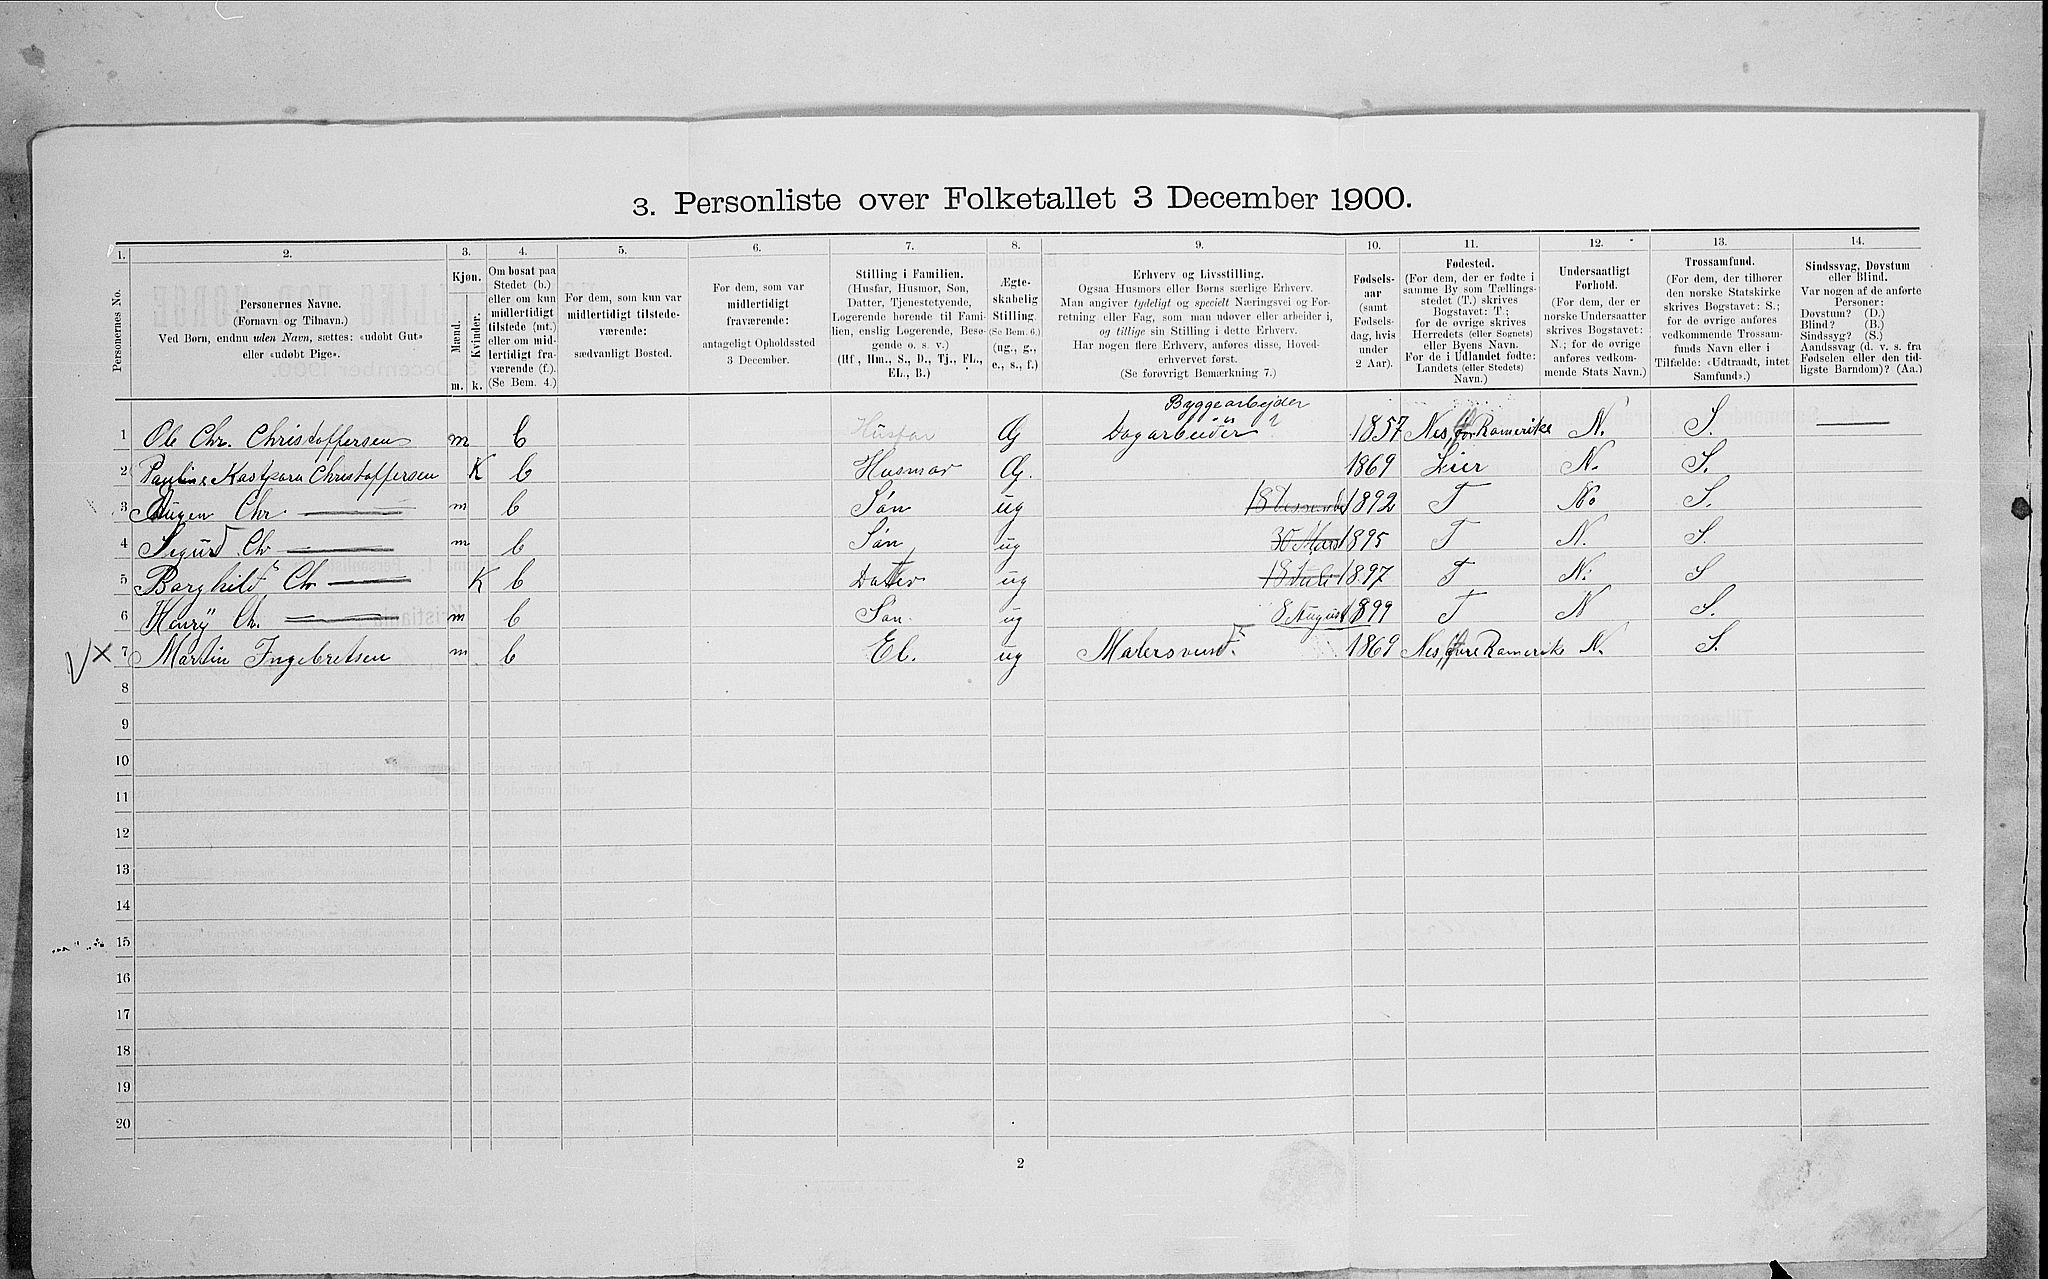 3. Personliste over Folketallet 3 December 1900.
1. 2. 3. 4. 5. 6. 7. 8. 9. 10. 11. 12. 13. 14.
Personernes No.
Personernes Navne.
(Fornavn og Tilnavn.)
Ved Børn, endnu uden Navn, sættes: «udøbt Gut»
eller «udøbt Pige».
Kjøn.
Mænd.
Kvinder.
m. k.
Om bosat paa
Stedet (b.)
eller om kun
midlertidigt
tilstede (mt.)
eller om mid-
lertidigt fra-
værende (f.).
(Se Bem. 4.)
For dem, som kun var
midlertidigt tilstede-
værende:
sædvanligt Bosted.
For dem, som var
midlertidigt
fraværende:
antageligt Opholdssted
3 December.
Stilling i Familien.
(Husfar, Husmor, Søn,
Datter, Tjenestetyende,
Logerende hørende til Fami-
lien, enslig Logerende, Besø-
gende o. s. v.)
(Hf., Hm., S., D., Tj., FL.,
EL., B.)
Ægte-
skabelig
Stilling.
(Se Bem. 6.)
(ug., g.,
e., s., f.)
Erhverv og Livsstilling.
Ogsaa Husmors eller Børns særlige Erhverv.
Man angiver tydeligt og specielt Næringsvei og For-
retning eller Fag, som man udøver eller arbeider i,
og tillige sin Stilling i dette Erhverv.
Har nogen flere Erhverv, anføres disse, Hoved-
erhvervet først.
(Se forøvrigt Bemærkning 7.)
Fødsels-
aar
(samt
Fødsels-
dag, hvis
under
2 Aar).
Fødested.
(For dem, der er fødte i
samme By som Tællings-
stedet (T.) skrives
Bogstavet: T.;
for de øvrige skrives
Herredets (eller Sognets)
eller Byens Navn.
For de i Udlandet fødte:
Landets (eller Stedets)
Navn.)
Undersaatligt
Forhold.
(For dem, der er
norske Undersaatter
skrives Bogstavet:
N.; for de øvrige
anføres vedkom-
mende Stats Navn.)
Trossamfund.
(For dem, der tilhører
den norske Statskirke
skrives Bogstavet: S.;
for de øvrige anføres
vedkommende Trossam-
funds Navn eller i
Tilfælde: «Udtraadt, intet
Samfund».)
Sindssvag, Døvstum
eller Blind.
Var nogen af de anførte
Personer:
Døvstum? (D.)
Blind? (B.)
Sindssyg? (S.)
Aandssvag (d. v. s. fra
Fødselen eller den tid-
ligste Barndom)? (Aa.)
Byggearbejder
1 Ole Chr. Christoffersen m b Husfar G Dagarbeider ? 1857 Nes, Romerike N. S.
2 Pauline Christoffersen K b Husmor G. 1869 Lier N. S.
3 Augen Chr. m b Søn ug 1892 T No S.
4 Sigurd Chr m b Søn ug 30 Mars 1895 T N. S.
5 Borghild Chr K b Datter ug 18 Juli 1897 T N. S
6 Henry Chr. m b Søn. ug 8 August 1899 T N S.
7 Martin Ingebretsen m b El. ug Malersvend 1869 Nes, Romerike N. S.
8
9
10
11
12
13
14
15
16
17
18
19
20
2